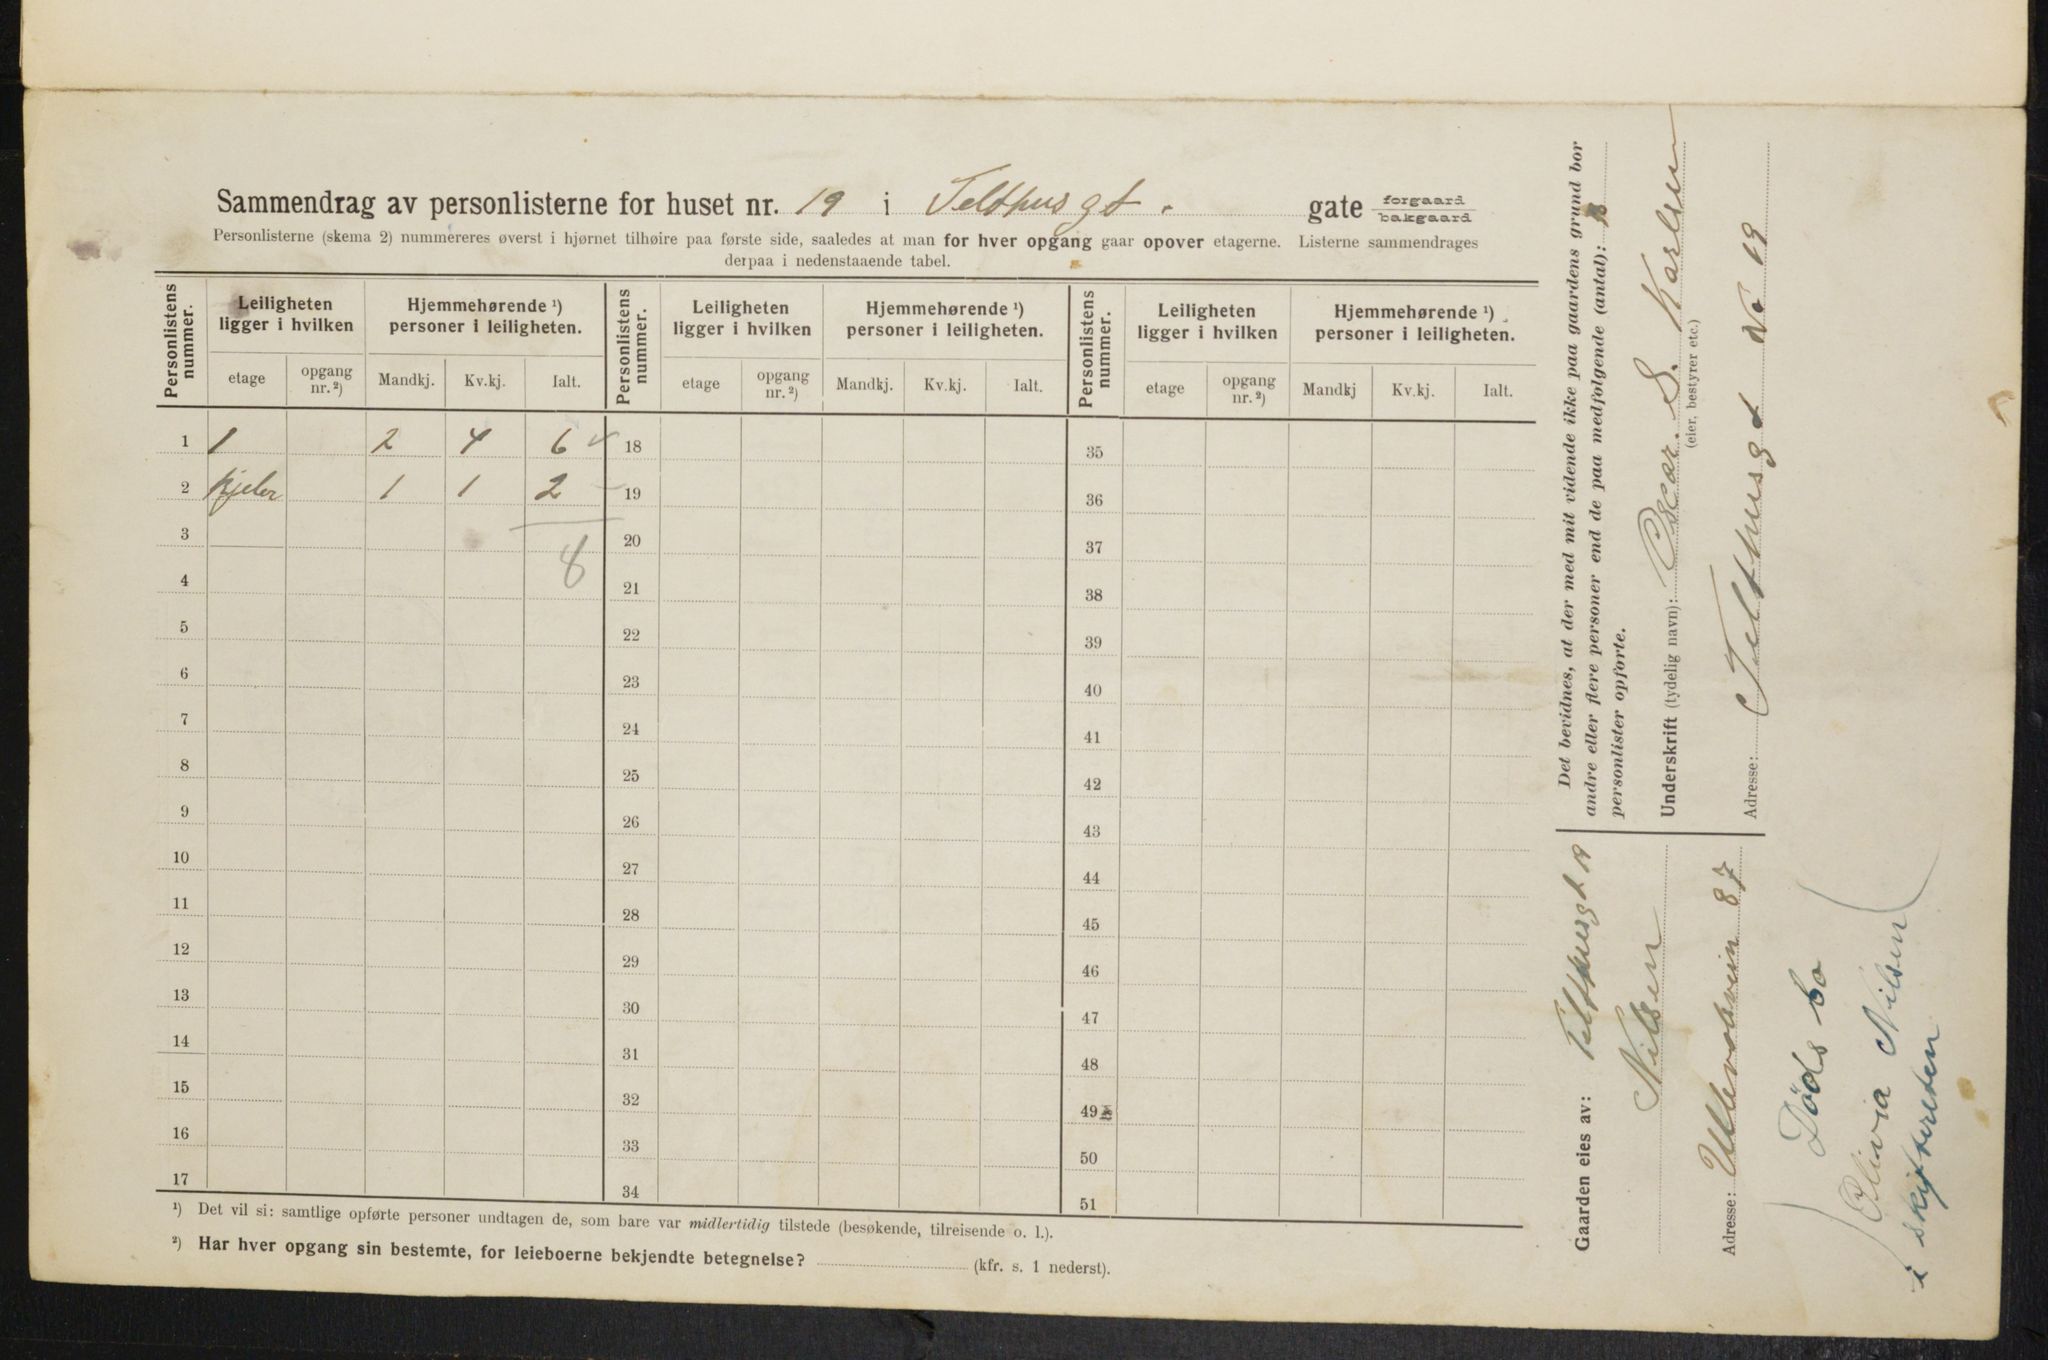 Sammendrag av personlisterne for huset nr. 19 i Telthusgt. gate forgaard bakgaard
Personlisterne (skema 2) nummereres øverst i hjørnet tilhøire paa første side, saaledes at man for hver opgang gaar opover etagerne. Listerne sammendrages
derpaa i nedenstaaende tabel.
Personlistens nummer. Leiligheten ligger i hvilken Hjemmehørende ¹) personer i leiligheten. Personlistens nummer. Leiligheten ligger i hvilken Hjemmehørende ¹) personer i leiligheten. Personlistens nummer. Leiligheten ligger i hvilken Hjemmehørende ¹) personer i leiligheten.
etage opgang nr. ²) Mandkj. Kv.kj. Ialt. etage opgang nr. ²) Mandkj. Kv.kj. Ialt. etage opgang nr. ²) Mandkj Kv.kj. Ialt.
1 1 2 4 6 18 35
2 kjeler 1 1 2 19 36
3 20 37
8
4 21 38
5 22 39
6 23 40
7 24 41
8 25 42
9 26 43
10 27 44
11 28 45
12 29 46
13 30 47
14 31 48
15 32 49
16 33 50
17 34 51
¹) Det vil si: samtlige opførte personer undtagen de, som bare var midlertidig tilstede (besøkende, tilreisende o. l.).
²) Har hver opgang sin bestemte, for leieboerne bekjendte betegnelse? (kfr. s. 1 nederst).
Det bevidnes, at der med mit vidende ikke paa gaardens grund bor
andre eller flere personer end de paa medfølgende (antal):
personlister opførte.
Underskrift (tydelig navn): Oscar. S. Karlsen
(eier, bestyrer etc.)
Adresse: Telthusgt No 19
Gaarden eies av: Telthusgt 19
Nilsen
Adresse: Ullevolsvein 87
Døds bo
Olivia Nilsen
i skifteretten